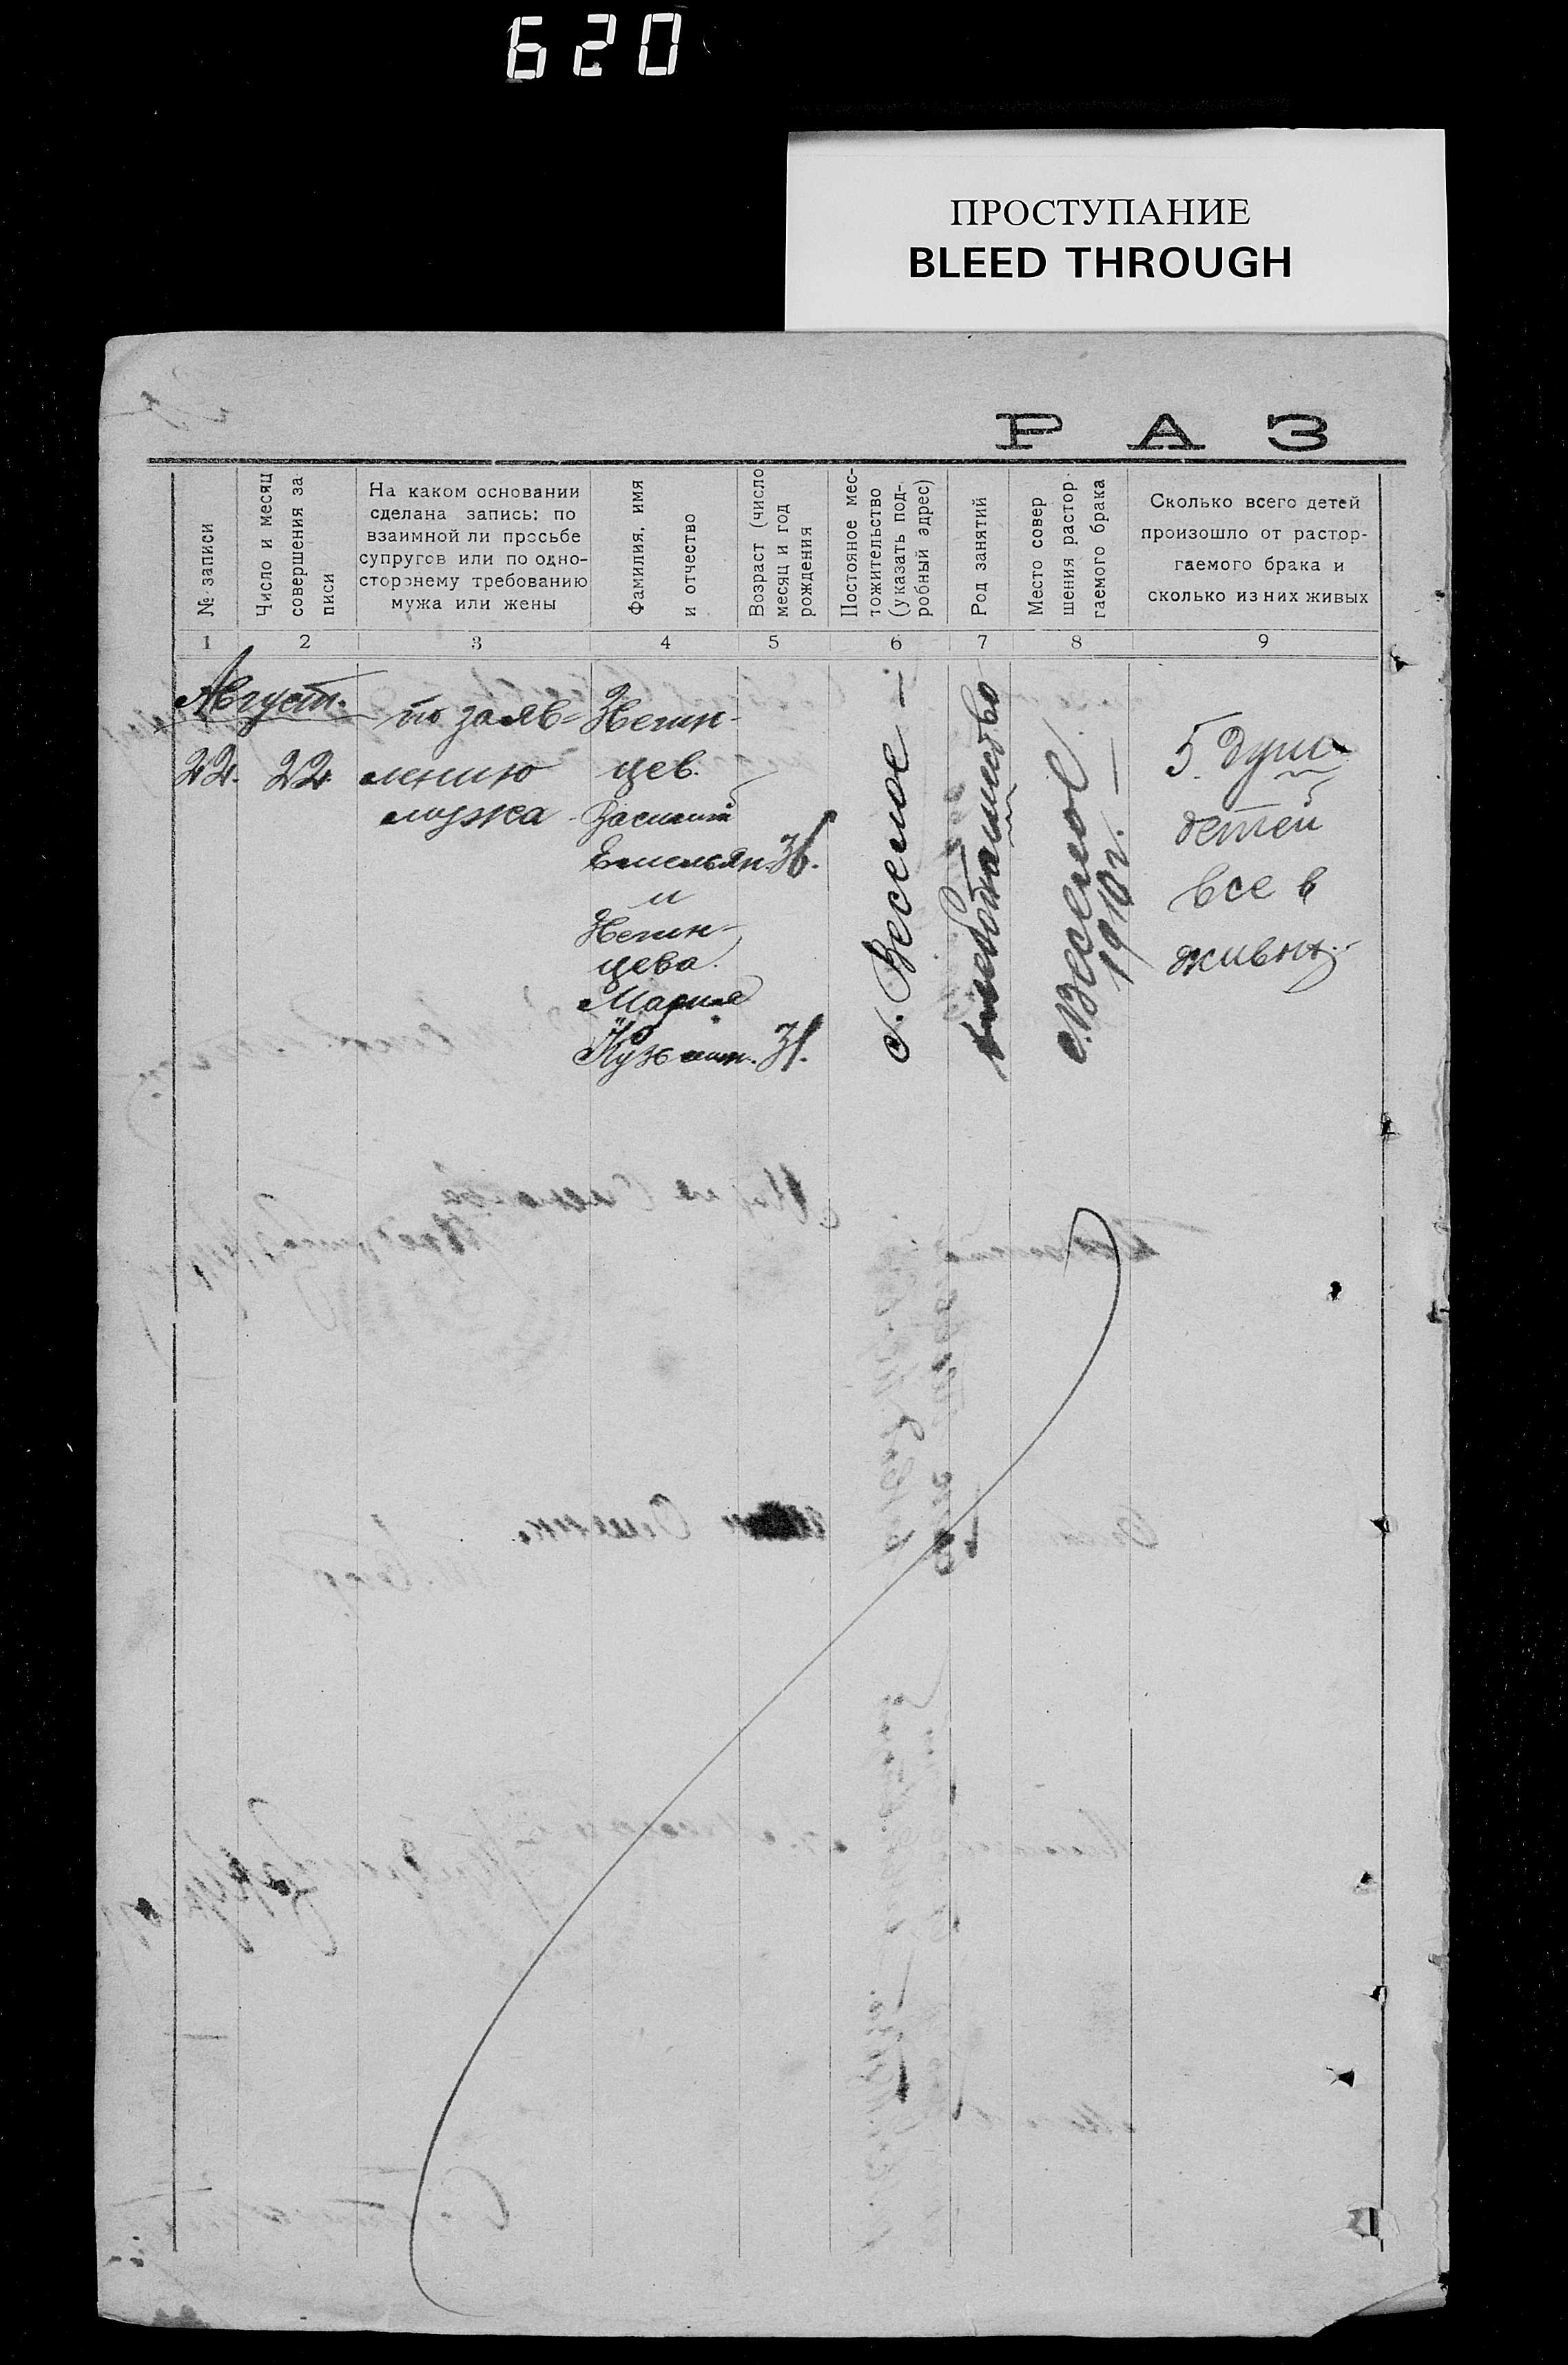 620
ПРОСТУПАНИЕ
BLEED THROUGH
РАЗ
№ записи
Число и месяц
совершения за
писи
На каком основании
сделана запись: по
взаимной ли просьбе
супругов или по одно-
стороннему требованию
мужа или жены
Фамилия, имя
и отчество
Возраст (число
месяц и год
рождения
Постояное мес-
тожительство
(указать под-
робный адрес)
Род занятий
Место совер
шения растор.
гаемого брака
Сколько всего детей
произошло от растор-
гаемого брака и
сколько из них живых
1 2 3 4 5 6 7 8 9
Август.
22. 22
по заяв-
лению
мужа
цев.
Василий
Емельян. 36.
и
цева.
Мария
Кузьмин. 31.
с. Веселое —
хлебопашество
с. Веселое
1910 г. —
5 душ
детей
все в
живых.